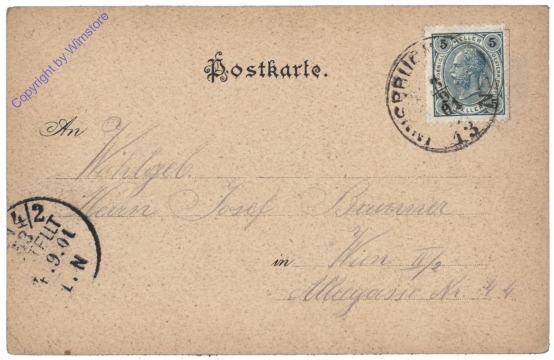 Copyright by Wimstore
Postkarte.
5 HELLER 5
13
An
Wohlgeb.
Herrn Josef Brunner
in Wien IV/2
Alleegasse Nr. 44
4/2
9.01